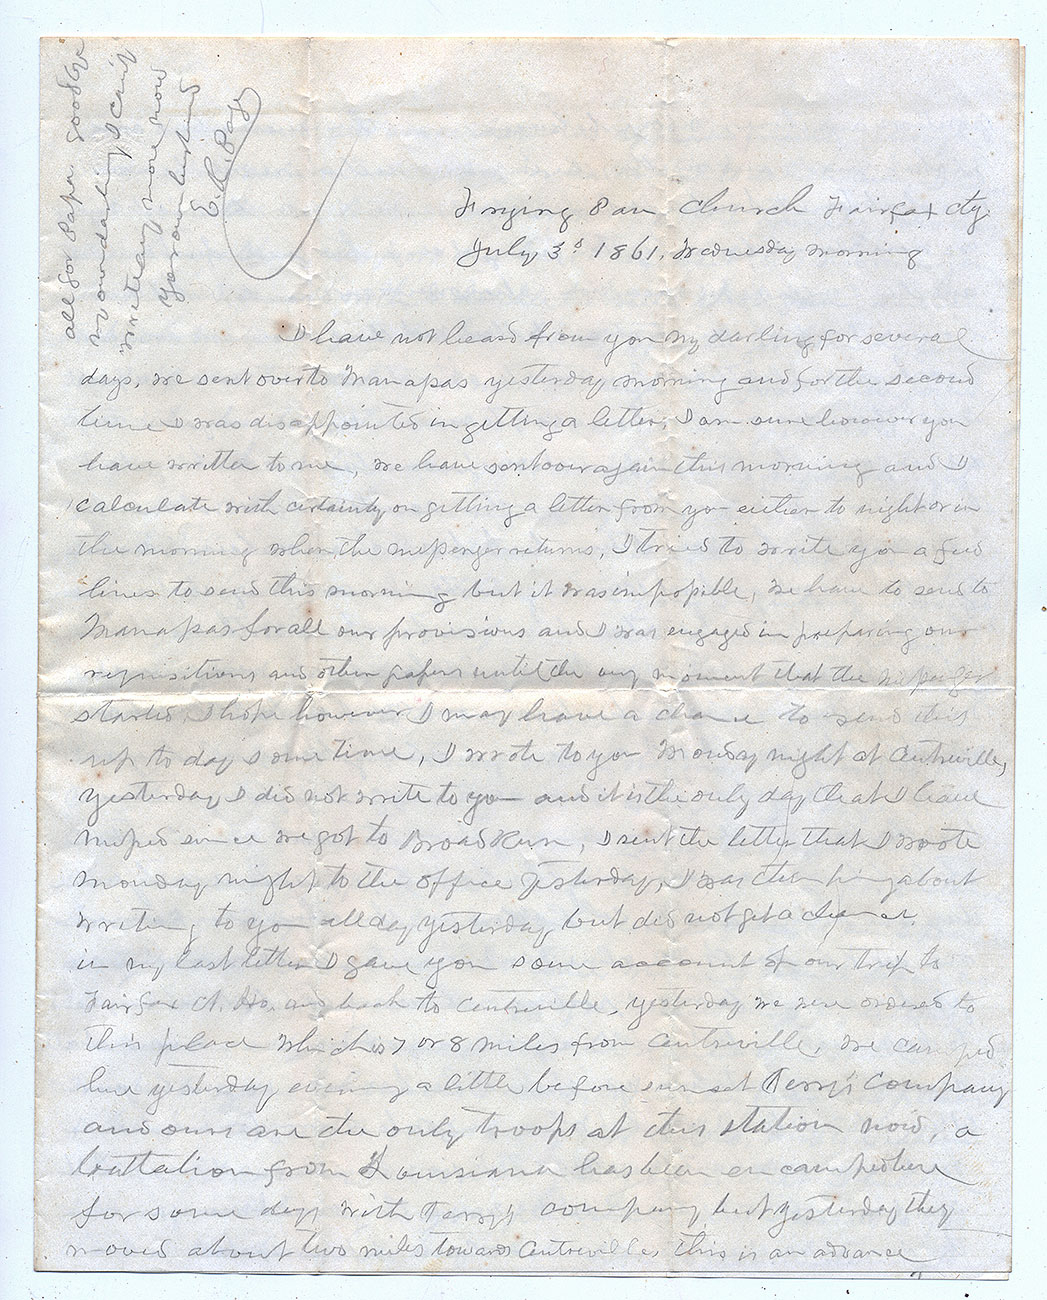 Frying Pan Church Fairfax cty.
July 3d 1861, Wednesday morning
I have not heard from you my darling for several
days, we sent over to Manassas yesterday morning and for the second
time I was disappointed in getting a letter, I am sure however you
have written to me, we have sent over again this morning and I
calculate with certainty on getting a letter from you either to night or in
the morning when the messenger returns, I tried to write you a few
lines to send this morning but it was impossible, we have to send to
Manassas for all our provisions and I was engaged in preparing our
requisitions and other papers until the very moment that the messenger
started, I hope however I may have a chance to send this
up to day some time, I wrote to you Monday night at Centreville,
yesterday I did not write to you and it is the only day that I have
missed since we got to Broad Run, I sent the letter that I wrote
Monday night to the office yesterday, I was thinking about
writing to you all day yesterday but did not get a chance
in my last letter I gave you some account of our trip to
Fairfax Ct. Ho. and back to Centreville, yesterday we were ordered to
this place which is 7 or 8 miles from Centreville, we camped
here yesterday evening a little before sunset Terry's company
and ours are the only troops at this station now, a
battalion from Louisiana has been encamped here
for some days with Terry's company but yesterday they
moved about two miles towards Centreville, this is an advance
all for Papa. good bye
my own darling I can't
write any more now
Your own husband
E. R. Page